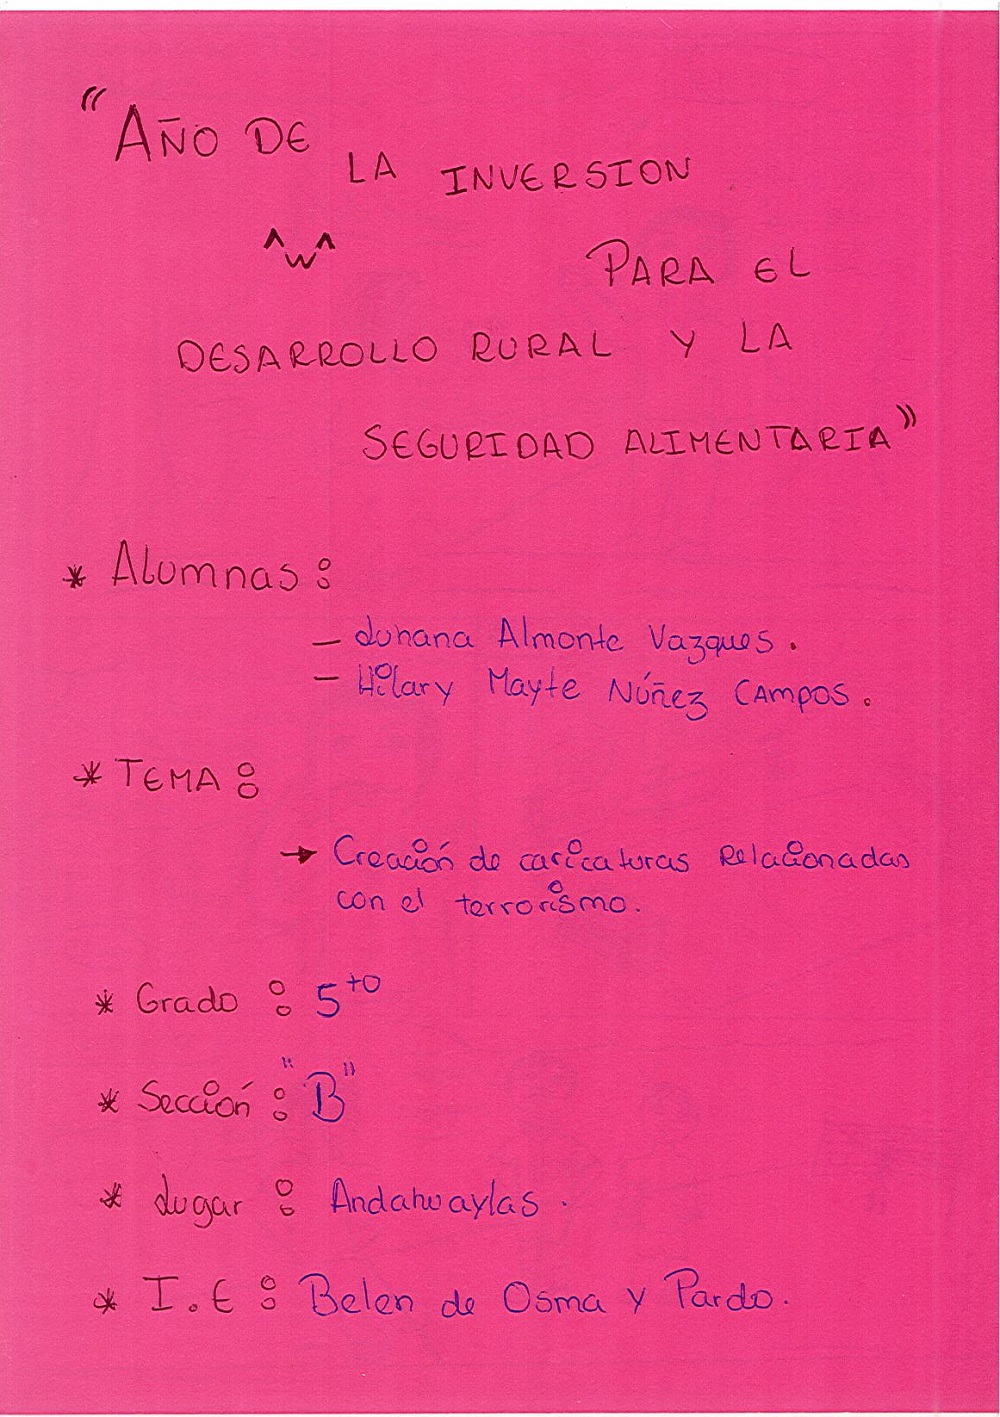 "AÑO DE LA INVERSION
^w^ PARA EL
DESARROLLO RURAL Y LA
SEGURIDAD ALIMENTARIA"
* Alumnas:
– Luhana Almonte Vazques.
– Hilary Mayte Núñez CAmpos.
* TEMA:
→ Creación de caricaturas Relacionadas
con el terrorismo.
* Grado : 5to
* Sección : "B"
* Lugar : Andahuaylas.
* I.E : Belen de Osma y Pardo.